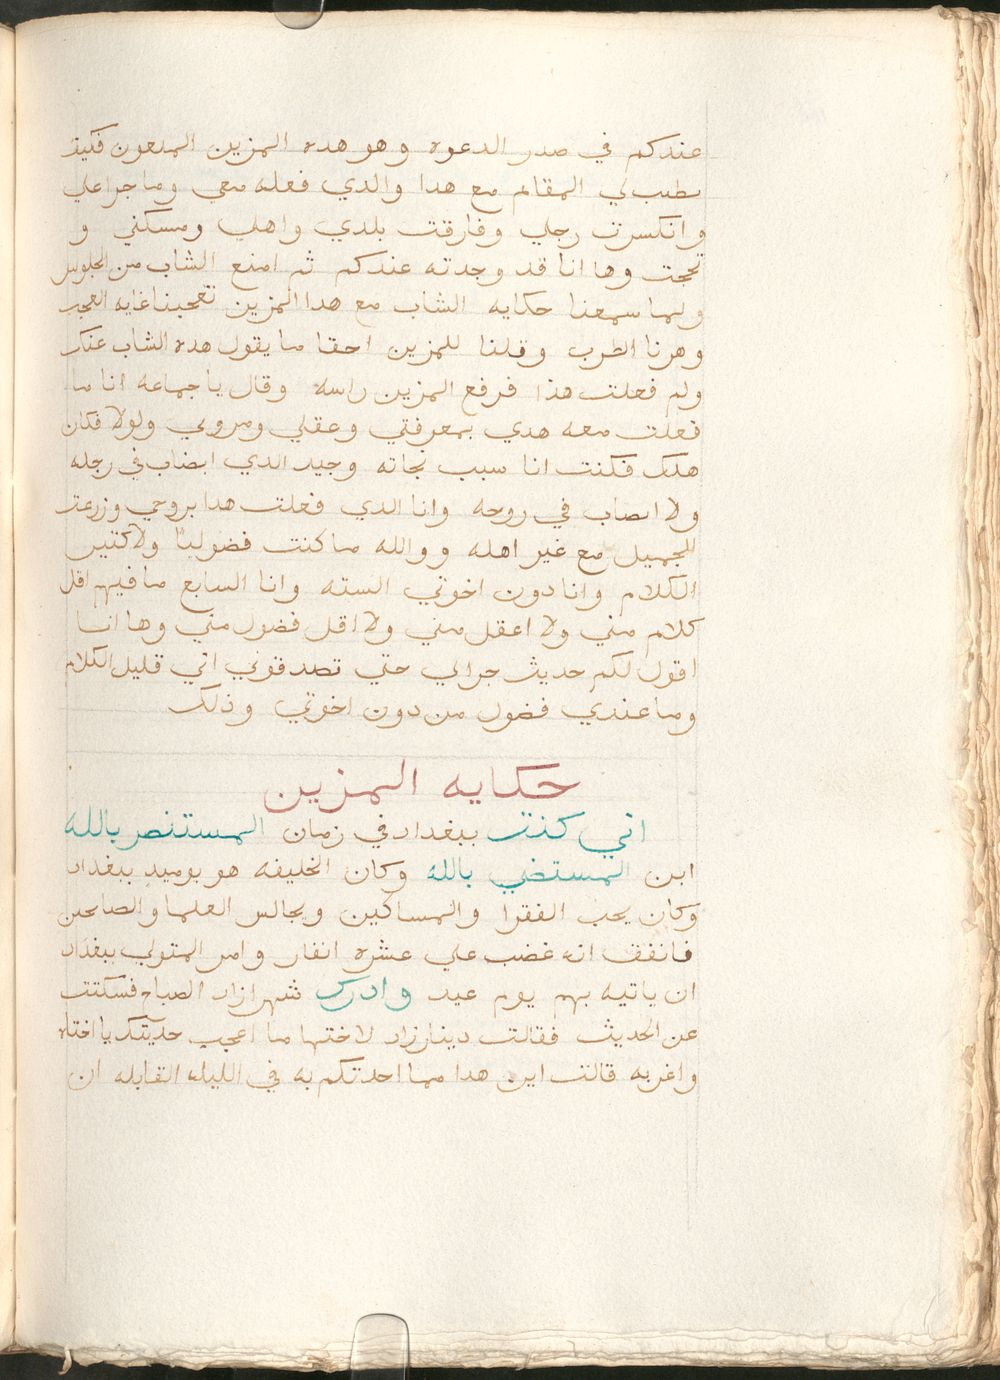 عندكم في صدر الدعوه وهو هده المزين الملعون فكيف
يطيب لي المقام مع هدا والدي فعله معي وما جرا علي
وانكسرت رجلي وفارقت بلدي واهلي ومسكني و
وها انا قد وجدته عندكم ثم امتنع الشاب من الجلوس
ولما سمعنا حكايه الشاب مع هدا المزين تعجبنا غايه العجب
وهزنا الطرب وقلنا للمزين احقا ما يقول هده الشاب عنك
ولم فعلت هذا فرفع المزين راسه وقال يا جماعه انا ما
فعلت معه هدي بمعرفتي وعقلي ومروتي ولولا فكان
هلك فكنت انا سبب نجاته وجيد الدي انصاب في رجله
ولا انصاب في روحه وانا الدي فعلت هدا بروحي وزرعت
الجميل مع غير اهله ووالله ما كنت فضوليا ولا كتير
الكلام وانا دون اخوتي السته وانا السابع ما فيهم اقل
كلام مني ولا اعقل مني ولا اقل فضول مني وها انا
اقول لكم حديث جرالي حتي تصدقوني اني قليل الكلام
وما عندي فضول من دون اخوتي وذلك
حكايه المزين
اني كنت ببغداد في زمان المستنصر بالله
ابن المستضي بالله وكان الخليفه هو يوميد ببغداد
وكان يحب الفقرا والمساكين ويجالس العلما والصالحين
فاتفق انه غضب علي عشره انفار وامر المتولي ببغداد
ان ياتيه بهم يوم عيد وادرك شهرازاد الصباح فسكتت
عن الحديث فقالت دينارزاد لاختها ما اعجب حديتك يا اختاه
واغربه قالت اين هدا مما احدتكم به في الليله القابله ان